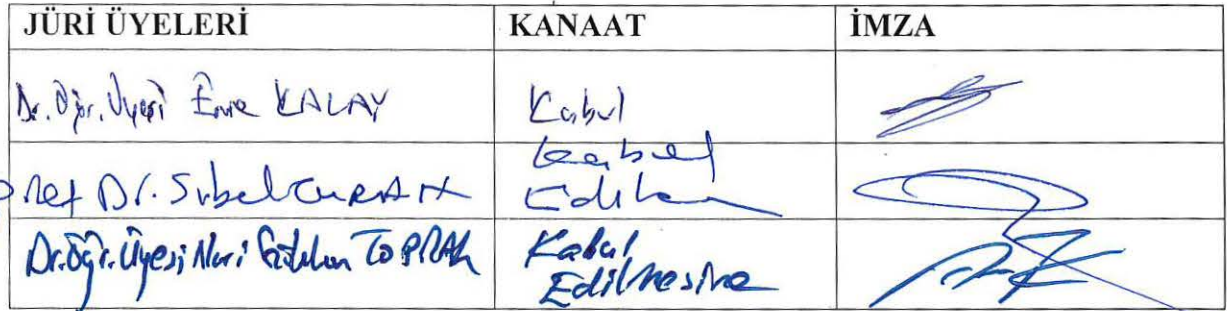 JÜRİ ÜYELERİ KANAAT İMZA
Dr. Öğr. Üyesi Emre KALAY Kabul
Prof Dr. Sibel Kabul
Dr. Öğr. Üyesi Nuri TOPRAK Kabul
Edilmesine